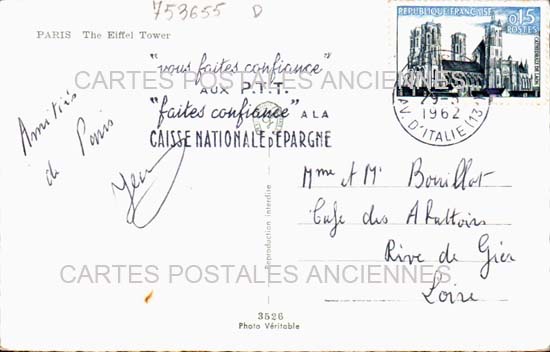 753655 D
PARIS The Eiffel Tower
REPUBLIQUE FRANÇAISE
0,15
POSTES
CATHEDRALE DE LAON
"vous faites confiance"
AUX P.T.T.
"faites confiance" A LA
CAISSE NATIONALE D'ÉPARGNE
1962
AV. D'ITALIE (13
CARTES POSTALES ANCIENNES
Amitiés
de Paris
Mme et Mr Bouillot
Cafe des Abattoirs
Rive de Gier
Loire
Reproduction interdite
CARTES POSTALES ANCIENNES
3526
Photo Véritable